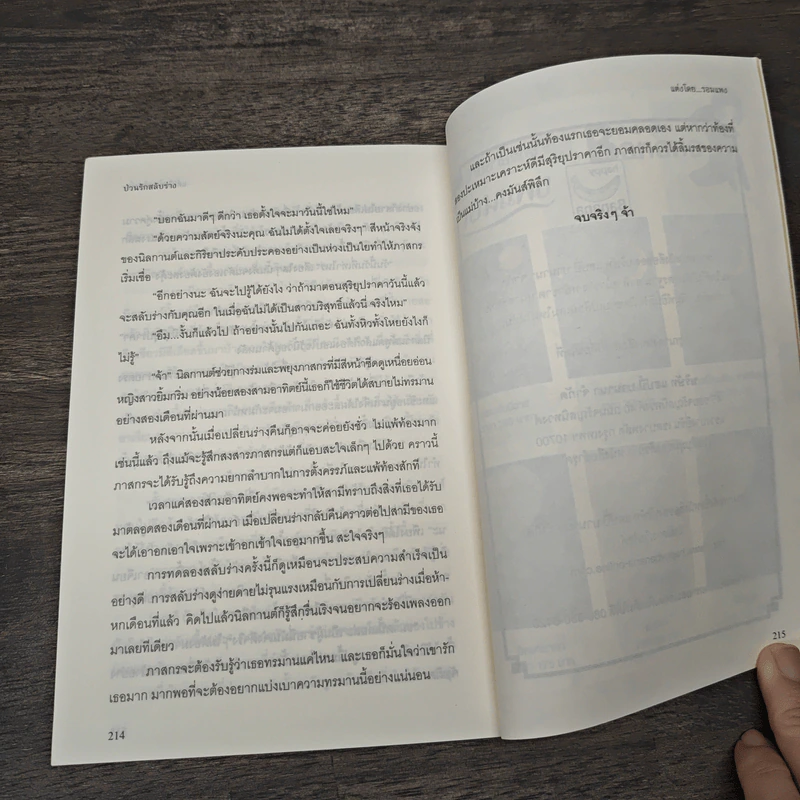 ป่วนรักสลับร่าง
"บอกฉันมาดีๆ ดีกว่า เธอตั้งใจจะมาวันนี้ใช่ไหม"
"ด้วยความสัตย์จริงนะคุณ ฉันไม่ได้ตั้งใจเลยจริงๆ" สีหน้าจริงจัง
ของนิลกานต์และกิริยาประคับประคองอย่างเป็นห่วงเป็นใยทำให้ภาสกร
เริ่มเชื่อ
"อีกอย่างนะ ฉันจะไปรู้ได้ยังไง ว่าถ้ามาตอนสุริยุปราคาวันนี้แล้ว
จะสลับร่างกับคุณอีก ในเมื่อฉันไม่ได้เป็นสาวบริสุทธิ์แล้วนี่ จริงไหม"
"อืม...งั้นก็แล้วไป ถ้าอย่างนั้นไปกันเถอะ ฉันทั้งหิวทั้งโหยยังไงก็
ไม่รู้"
"จ้า" นิลกานต์ช่วยกางร่มและพยุงภาสกรที่มีสีหน้าซีดดูเหนื่อยอ่อน
หญิงสาวยิ้มกริ่ม อย่างน้อยสองสามอาทิตย์นี้เธอก็ใช้ชีวิตได้สบายไม่ทรมาน
อย่างสองเดือนที่ผ่านมา
หลังจากนั้นเมื่อเปลี่ยนร่างคืนก็อาจจะค่อยยังชั่ว ไม่แพ้ท้องมาก
เช่นนี้แล้ว ถึงแม้จะรู้สึกสงสารภาสกรแต่ก็แอบสะใจเล็กๆ ไปด้วย คราวนี้
ภาสกรจะได้รับรู้ถึงความยากลำบากในการตั้งครรภ์และแพ้ท้องสักที
เวลาแค่สองสามอาทิตย์คงพอจะทำให้สามีทราบถึงสิ่งที่เธอได้รับ
มาตลอดสองเดือนที่ผ่านมา เมื่อเปลี่ยนร่างกลับคืนคราวต่อไปสามีของเธอ
จะได้เอาอกเอาใจเพราะเข้าอกเข้าใจเธอมากขึ้น สะใจจริงๆ
การทดลองสลับร่างครั้งนี้ก็ดูเหมือนจะประสบความสำเร็จเป็น
อย่างดี การสลับร่างดูง่ายดายไม่รุนแรงเหมือนกับการเปลี่ยนร่างเมื่อห้า-
หกเดือนที่แล้ว คิดไปแล้วนิลกานต์ก็รู้สึกรื่นเริงจนอยากจะร้องเพลงออก
มาเลยทีเดียว
ภาสกรจะต้องรับรู้ว่าเธอทรมานแค่ไหน และเธอก็มั่นใจว่าเขารัก
เธอมาก มากพอที่จะต้องอยากแบ่งเบาความทรมานนี้อย่างแน่นอน
214
แต่งโดย...รอมแพง
และถ้าเป็นเช่นนั้นท้องแรกเธอจะยอมคลอดเอง แต่หากว่าท้องที่
สองปะเหมาะเคราะห์ดีมีสุริยุปราคาอีก ภาสกรก็ควรได้ลิ้มรสของความ
เป็นแม่บ้าง...คงมันส์พิลึก
จบจริงๆ จ้า
215